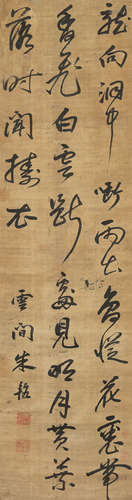 龍向洞中啣雨出鳥從花裏帶
香飛白雲斷處見明月黃葉
落時聞擣衣
雲間朱